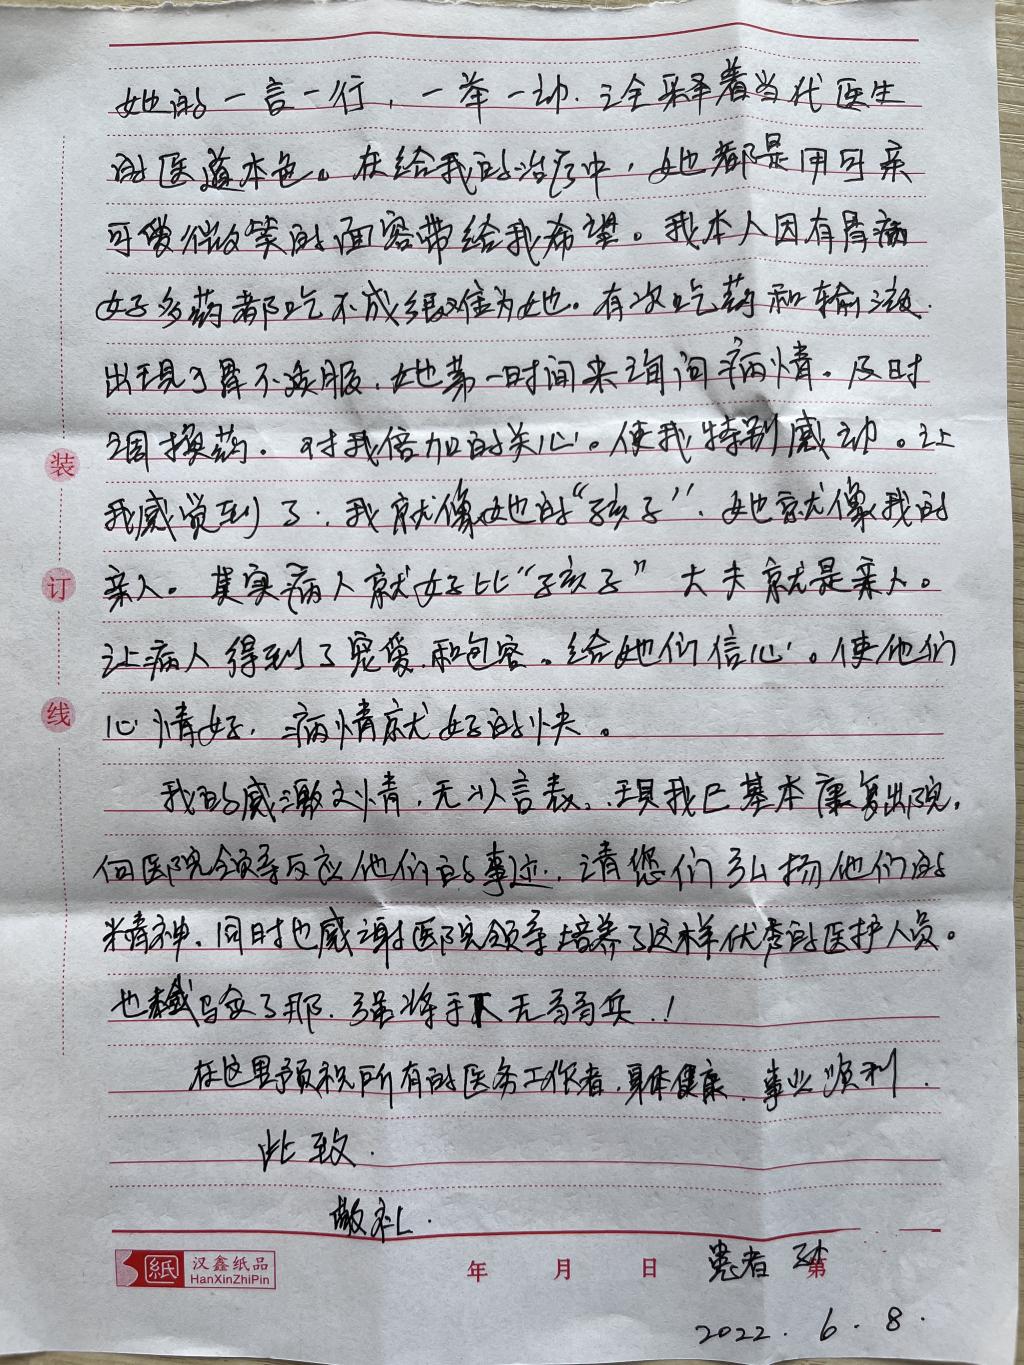 她的一言一行，一举一动.诠释着当代医生
的医道本色。在给我的治疗中，她都是用可亲
可爱微笑的面容带给我希望。我本人因有胃病
好多药都吃不成很难为她。有次吃药和输液.
出现了胃不舒服.她第一时间来询问病情。及时
调换药。对我倍加的关心。使我特别感动。让
我感觉到了.我就像她的“孩子”.她就像我的
亲人。其实病人就好比“孩子”大夫就是亲人。
让病人得到了宠爱.和包容。给她们信心。使他们
心情好.病情就好的快。
我的感激之情.无以言表.现我已基本康复出院.
向医院领导反应他们的事迹..请您们弘扬他们的
精神、同时也感谢医院领导培养了这样优秀的医护人员。
也领会了那.强将手下无弱兵.!
在这里预祝所有的医务工作者.身体健康.事业顺利.
此致.
敬礼.
装
订
线
紙
汉鑫纸品
HanXinZhiPin
年 月 日 第
患者
2022.6.8.